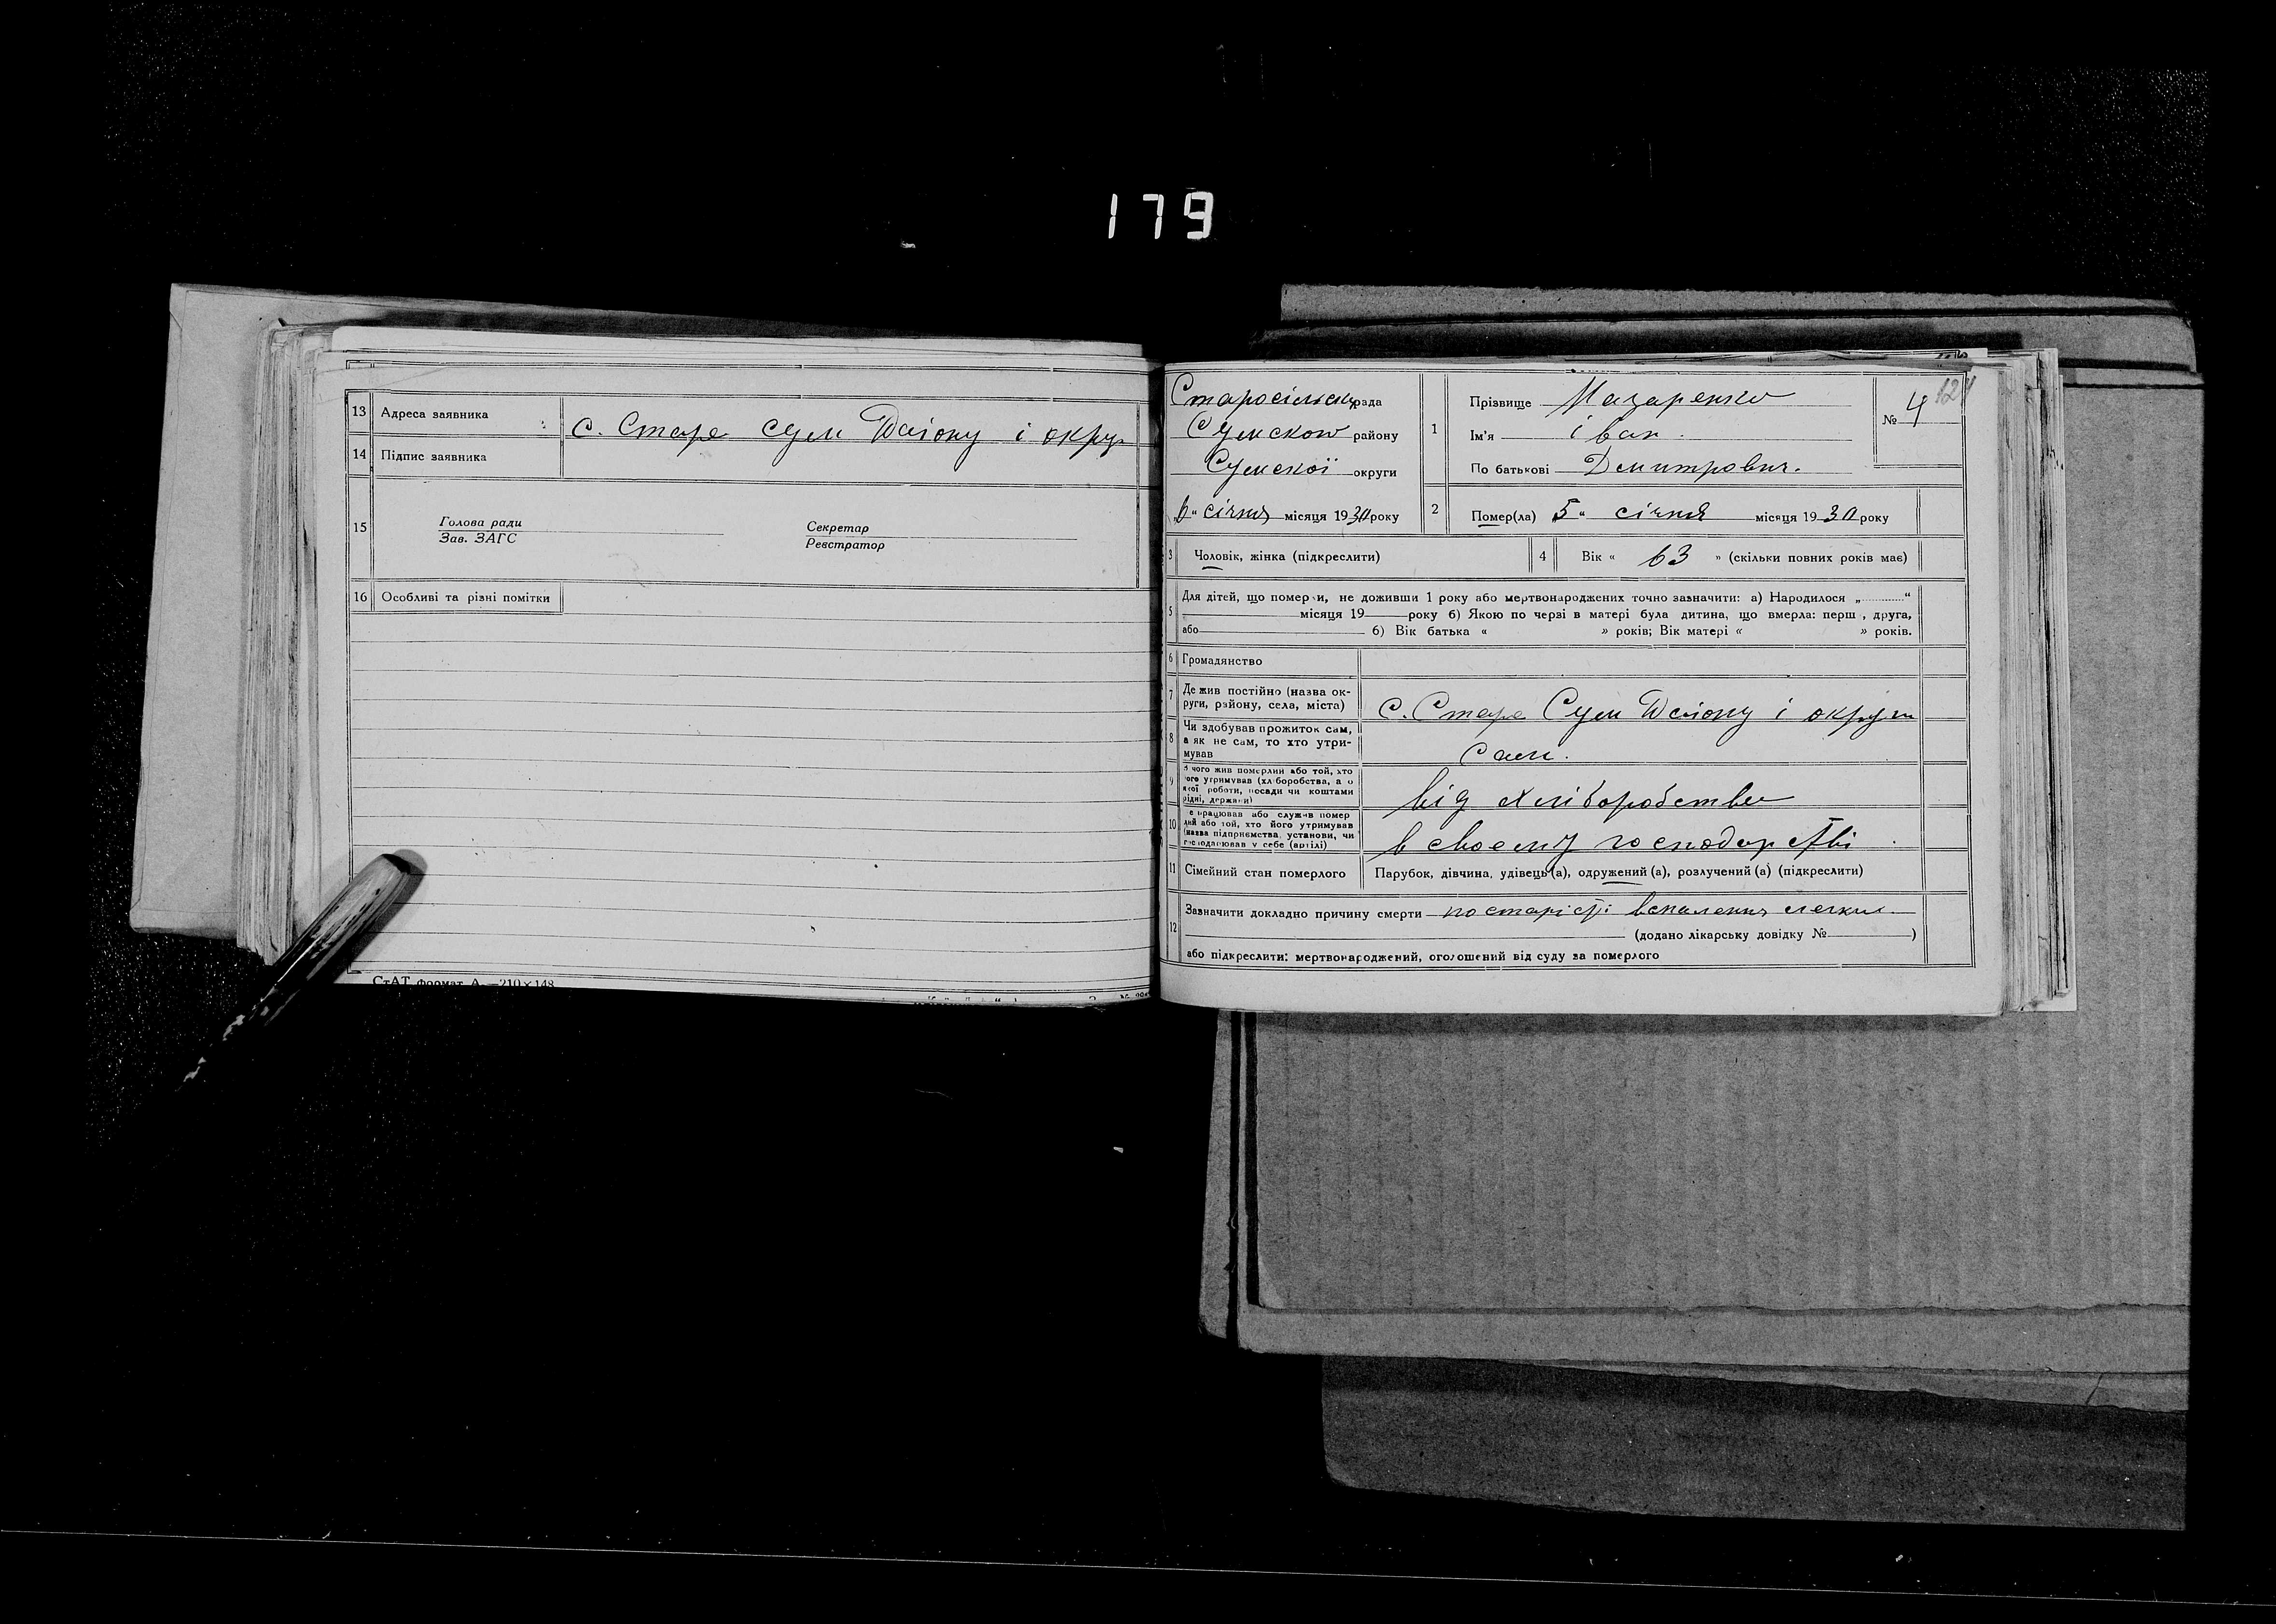 179
13 Адреса заявника
с. Старе Сум Району і округ
14 Підпис заявника
15 Голова ради
Зав. ЗАГС
Секретар
Реєстратор
16 Особливі та різні помітки
СтАТ формат А —210×148
Старосільськ рада
Сумского району
Сумскої округи
„6“ січня місяця 1930 року
1 Прізвище Назаренко
Ім'я іван.
По батькові Дмитрович.
№ 4
2 Помер(ла) 5“ січня місяця 1930 року
3 Чоловік, жінка (підкреслити)
4 Вік « 63 » (скільки повних років має)
5 Для дітей, що померли, не доживши 1 року або мертвонароджених точно зазначити: а) Народилося „............“
місяця 19 року б) Якою по черзі в матері була дитина, що вмерла: перш , друга,
або б) Вік батька « » років; Вік матері « » років.
6 Громадянство
7 Де жив постійно (назва ок-
руги, району, села, міста)
с. Старе Сум Району і округи
8 Чи здобував прожиток сам,
а як не сам, то хто утри-
мував
сам.
9 З чого жив померлий або той, хто
його утримував (хліборобства, а о
якої роботи, посади чи коштами
рідні, держави)
від хліборобства
10 Де працював або служив помер
лий або той, хто його утримував
(назва підприємства, установи, чи
господарював у себе (артілі)
в своему господарстві
11 Сімейний стан померлого
Парубок, дівчина, удівець(а), одружений (а), розлучений (а) (підкреслити)
12 Зазначити докладно причину смерти по старісті вспаления легких.
(додано лікарську довідку № )
або підкреслити: мертвонароджений, оголошений від суду за померлого